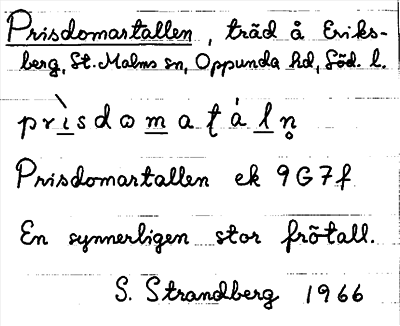 Prisdomartallen, träd å Eriks-
berg, St. Malms sn, Oppunda hd, Söd. l.
prı̀sdωmaʈáln̥
Prisdomartallen ek 9G7f
En synnerligen stor frötall.
S. Strandberg 1966